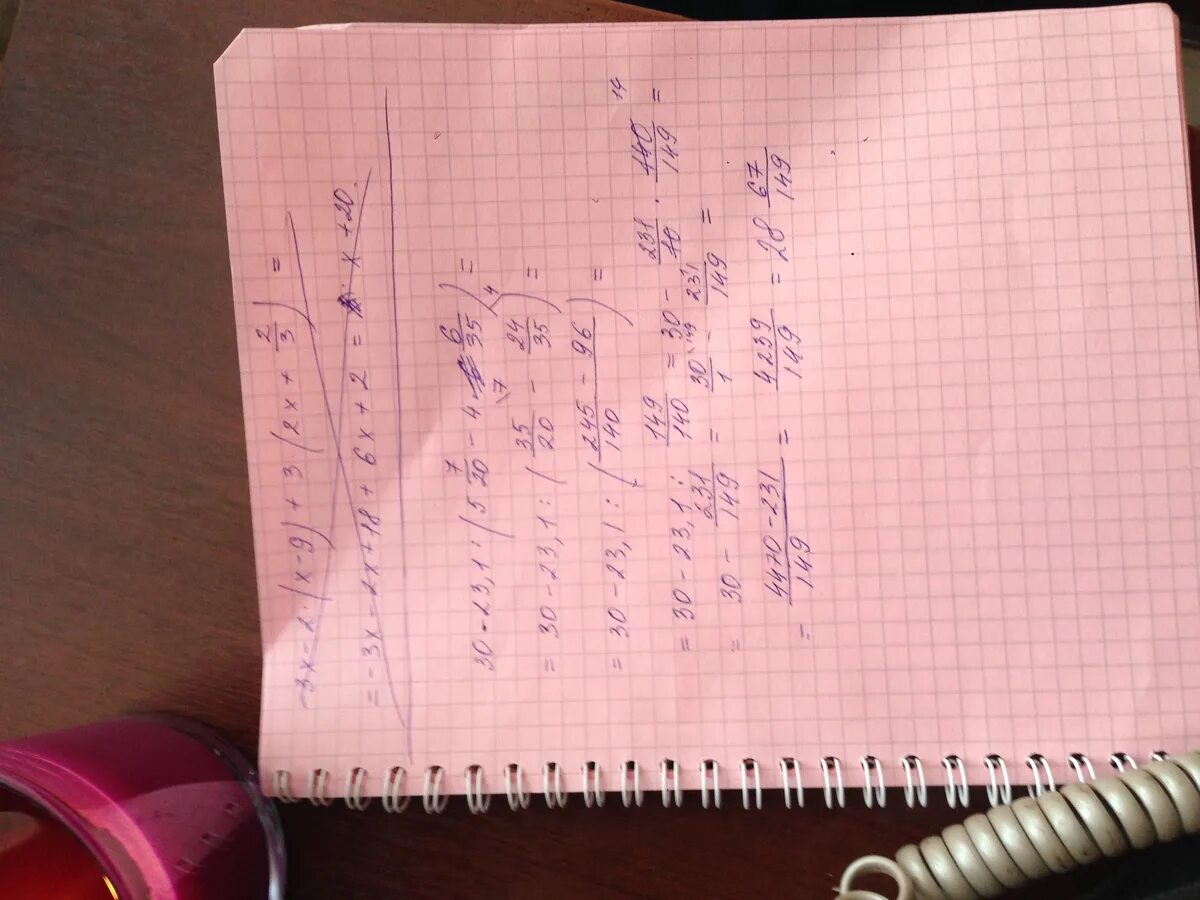 -3x - 2·(x-9) + 3·(2x + 2/3) =
= -3x - 2x + 18 + 6x + 2 = x + 20.
30 - 23,1 : (5 7/20 - 4 6/35) =
= 30 - 23,1 : (35/20 \7 - 24/35 \4) =
= 30 - 23,1 : (245 - 96 / 140) =
= 30 - 23,1 : 149/140 = 30 - 231/10 · 140/149 14 =
= 30 - 231/149 = 30/1 \149 - 231/149 =
= 4470 - 231 / 149 = 4239/149 = 28 67/149